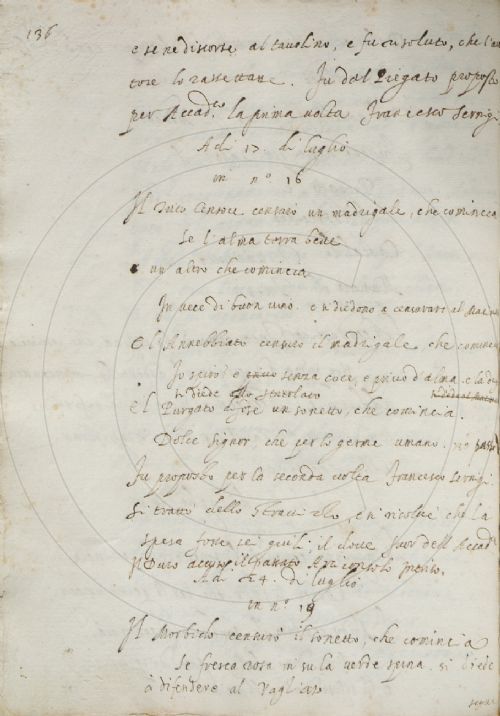 136
e se ne discorse al tavolino, e fu risoluto, che l'au
tore lo rassettasse. Fu dal Piegato proposto
per Accad.co la prima volta Francesco Sernigi
A di 17. di luglio
in n.o 16
Il Duro Censore censurò un madrigale, che comincia
Se l'alma terra bebe
e un altro che comincia
In vece di buon vino. e si diedono a censurare al
E l'Annebbiato censurò il madrigale che cominc
Io scrivo senza voce, e privo d'alma. e la
si diede allo Stritolato
E l Purgato lesse un sonetto, che comincia.
Dolce signor, che per lo germe umano.
Fu proposto per la seconda volta Francesco Sernigi.
Si trattò dello Stravizzo, e si risolvé che la
spesa fosse sei giuli: il dove fuor dell'Accad.a
Il Duro accusò il
A di 24. di luglio
in n.o 19
Il Morbido censurò il sonetto, che comincia
Se fresca rosa in su la verde spina. si diede
a difendere al Vagliato
segue